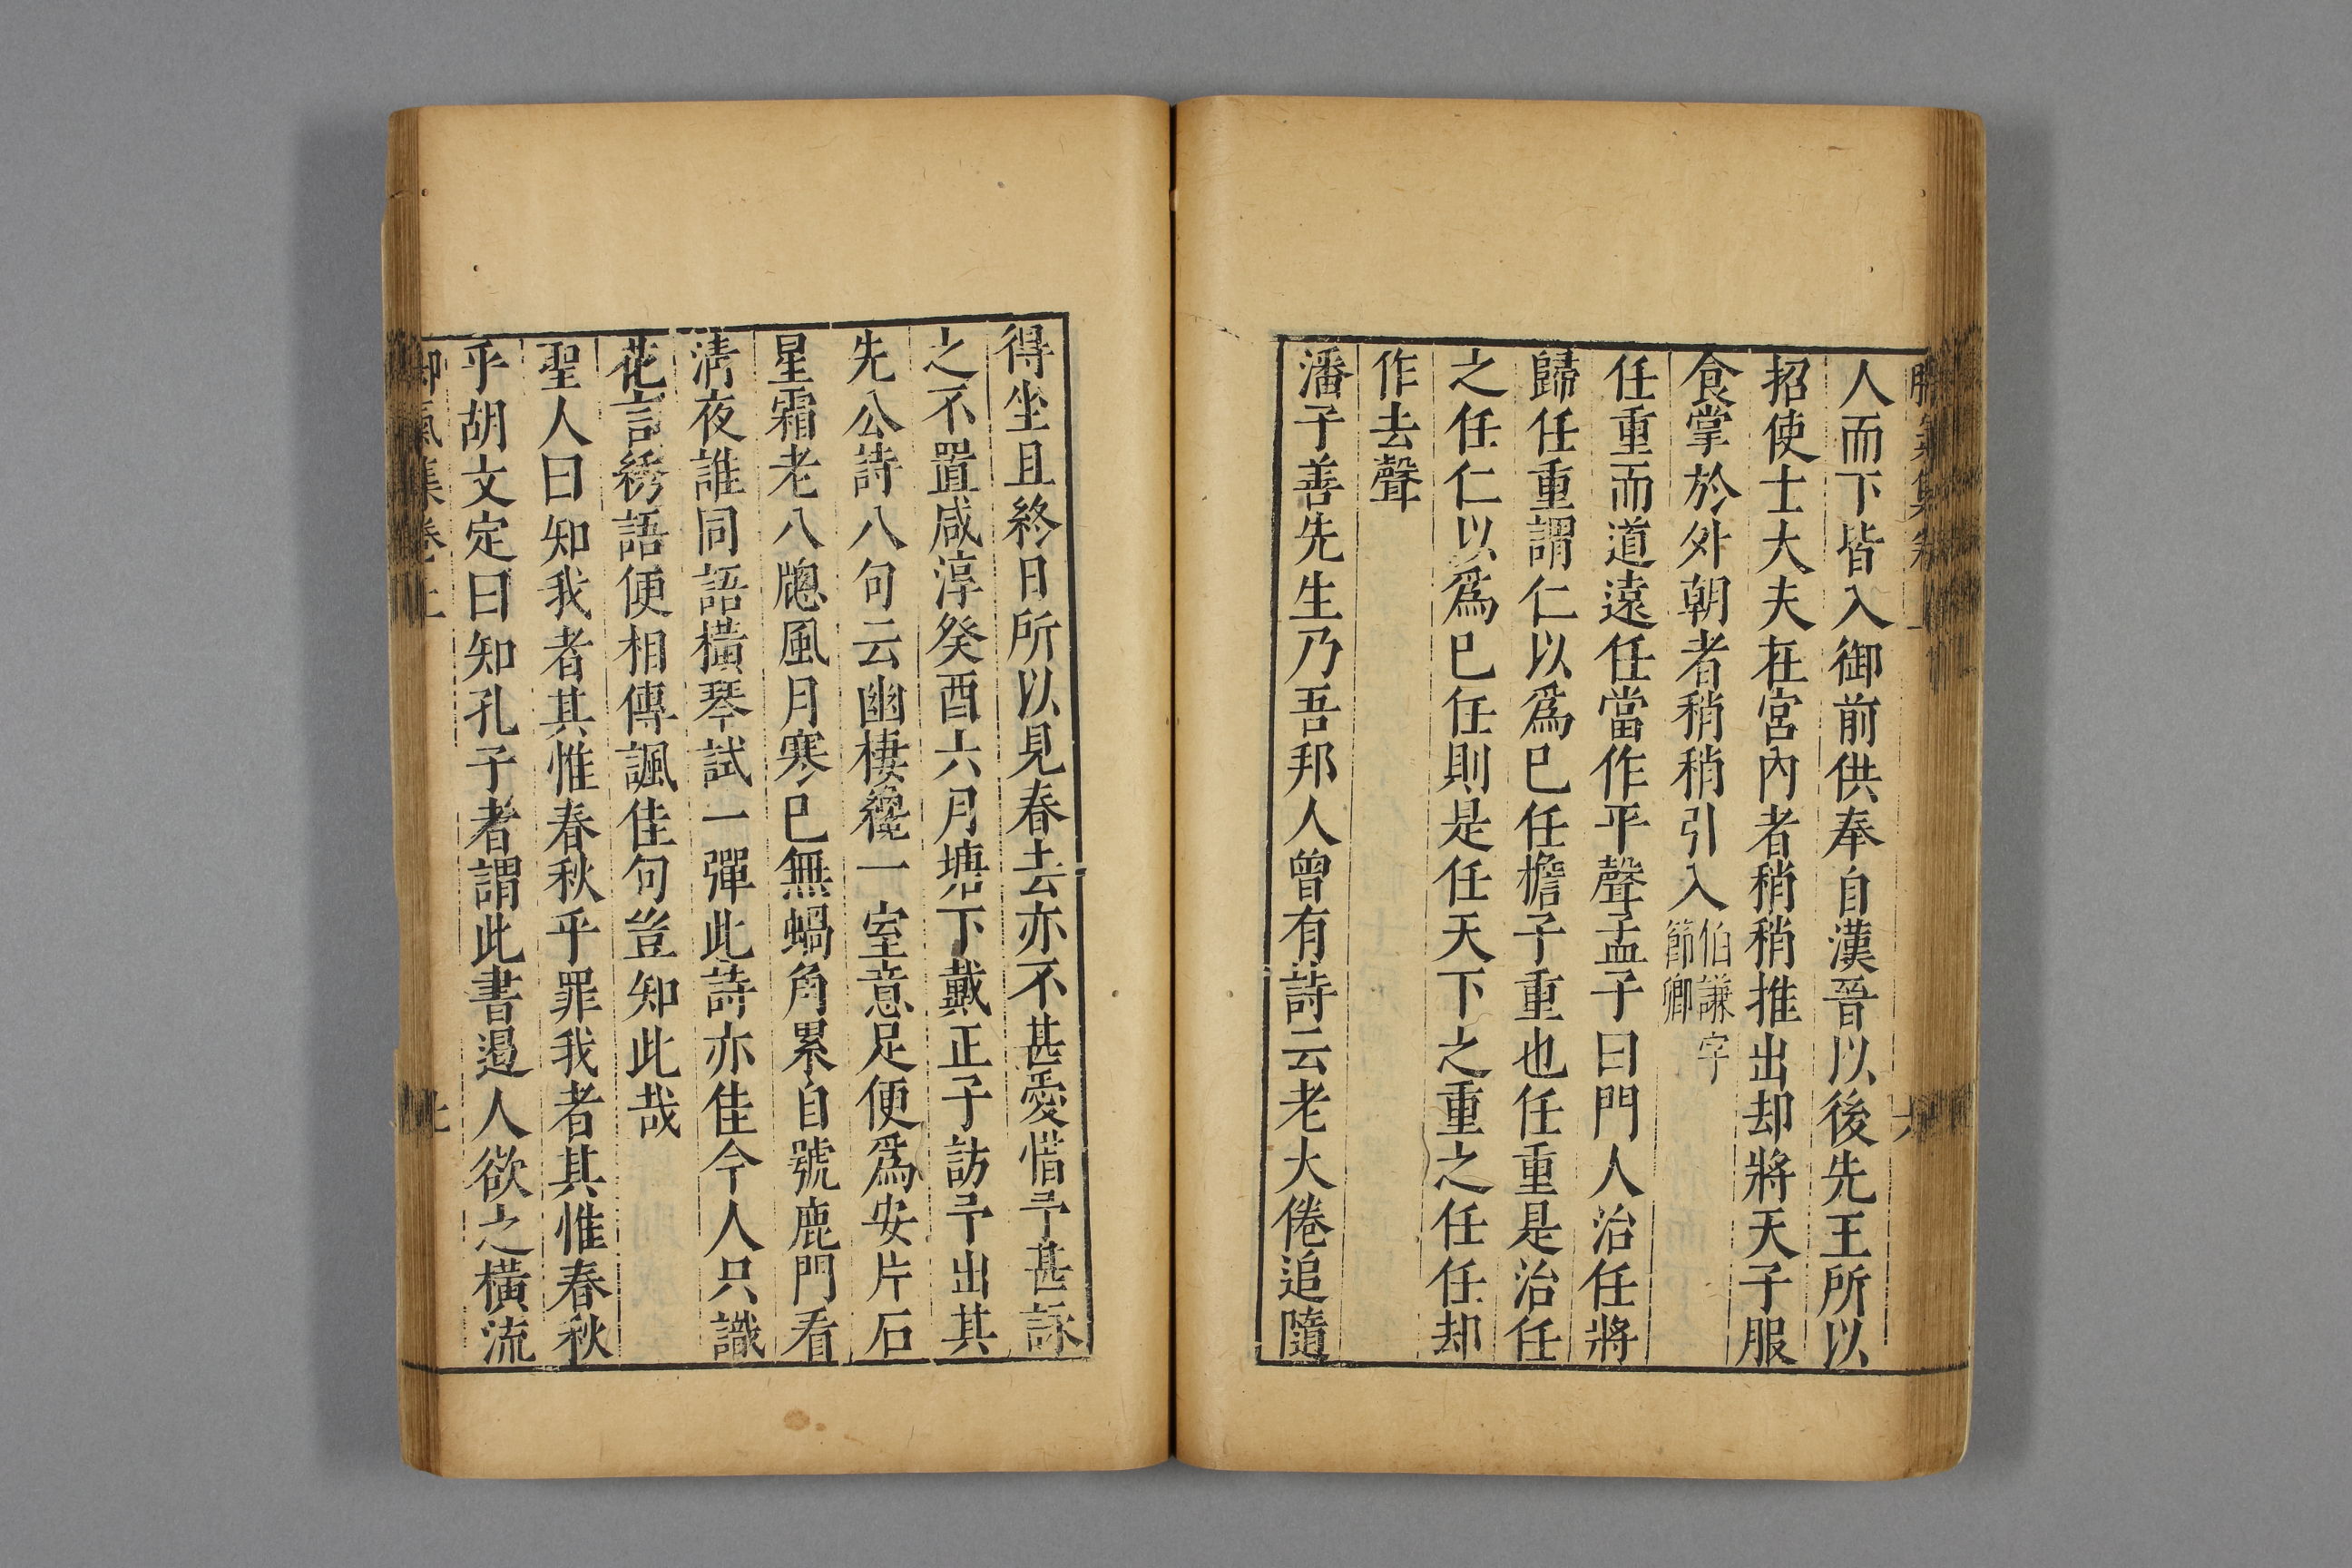 人而下皆入御前供奉自漢晉以後先王所以
招使士大夫在宮內者稍稍推出却將天子服
食掌於外朝者稍稍引入伯謙字節卿
任重而道遠任當作平聲孟子曰門人治任將
歸任重謂仁以爲已任擔子重也任重是治任
之任仁以爲已任則是任天下之重之任任却
作去聲
潘子善先生乃吾邦人曾有詩云老大倦追隨
得坐且終日所以見春去亦不甚愛惜予甚詠
之不置咸淳癸酉六月塘下戴正子訪予出其
先公詩八句云幽棲纔一室意足便爲安片石
星霜老八牎風月寒已無蝸角累自號鹿門看
淸夜誰同語橫琴試一彈此詩亦佳今人只識
花言綉語便相傳諷佳句豈知此哉
聖人曰知我者其惟春秋乎罪我者其惟春秋
乎胡文定曰知孔子者謂此書遏人欲之橫流